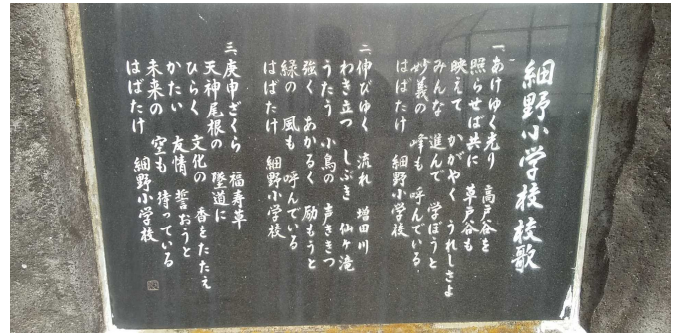 細野小学校 校歌
一、あけゆく光り 高戸谷を
照らせば共に 草戸谷も
映えて かがやく うれしさよ
みんな 進んで 学ぼうと
妙義の 峰も 呼んでいる
はばたけ 細野小学校
二、伸びゆく 流れ 増田川
わき立つ しぶき 仙ヶ滝
うたう 小鳥の 声ききつ
強く あかるく 励もうと
緑の 風も 呼んでいる
はばたけ 細野小学校
三、庚申ざくら 福寿草
天神尾根の 墜道に
ひらく 文化の 香をたたえ
かたい 友情 誓おうと
未来の 空も 待っている
はばたけ 細野小学校